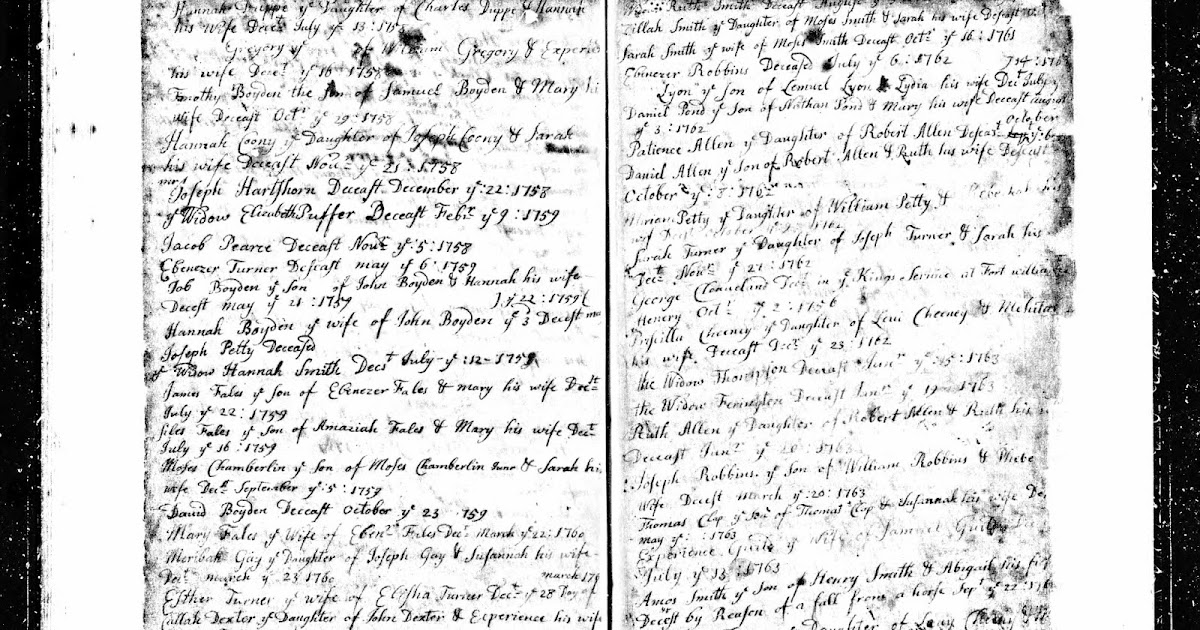 Hannah Duppe ye Daughter of Charles Duppe & Hannah
his Wife Decst July ye 13:175
Gregory ye of William Gregory & Experi
his wife Decst ye 16 1758
Timothy Boyden the Son of Samuel Boyden & Mary hi
Wife Deceast Octr ye 29:1758
Hannah Coony ye Daughter of Joseph Coony & Sarah
his wife Deceast Nour ye 21:1758
mr Joseph Hartshorn Deceast December ye:22:1758
ye Widow Elizabeth Puffer Deceast Febr ye 9:1759
Jacob Pearce Deceast Nour ye 5:1758
Ebenezer Turner Deceast may ye 6:1759
Job Boyden ye Son of John Boyden & Hannah his wife
Decest may ye 21:1759
Hannah Boyden ye wife of John Boyden ye 3 Decest ma
Joseph Petty Deceased
ye Widow Hannah Smith Decst July ye:12-1759
James Fales ye Son of Ebenezer Fales & mary his wife Decst
July ye 22:1759
Silas Fales ye Son of Amaziah Fales & Mary his wife Decst
July ye 16:1759
Moses Chamberlin ye Son of Moses Chamberlin Junr & Sarah hi
wife Decst September ye:5:1759
David Boyden Deceast October ye 23 1759
Mary Fales ye Wife of Ebenr Fales Decst March ye 22:1760
Meribah Gay ye Daughter of Joseph Gay & Susannah his wife
Decst march ye 23 1760
march 17
Esther Turner ye wife of Elisha Turner Decst ye 28 Day of
Callah Dexter ye Daughter of John Dexter & Experience his wife
Ruth Smith Deceast August 3
Zillah Smith ye Daughter of Moses Smith & Sarah his wife Deceast
Sarah Smith ye wife of Moses Smith Deceast Octr ye 16:1761
Ebenezer Robbins Deceased July ye 6:1762
Lyon ye Son of Lemuel Lyon & Lydia his wife Decst July
Daniel Pond ye Son of Nathan Pond & Mary his wife Deceast august
ye 3:1762
October
Patience Allen ye Daughter of Robert Allen Deceast
Daniel Allen ye Son of Robert Allen & Ruth his wife Deceast
October ye:8:1762
Miriam Petty ye Daughter of William Petty &
Sarah Turner ye Daughter of Joseph Turner & Sarah his
Decst Nour ye 21:1762
George Cleaveland Decst in ye Kings Service at Fort william
Henery Octr ye 2:1756
Priscilla Cheeney ye Daughter of Levi Cheeney & Mehitab
his wife Deceast Decr ye 23:1762
the Widow Thompson Deceast Janr ye 15:1763
the Widow Ferington Deceast Janr ye 19 1763
Ruth Allen ye Daughter of Robert Allen & Ruth his
Deceast Janr ye 20:1763
Joseph Robbins ye Son of William Robbins &
Wife Decest March ye:20:1763
Thomas Clap ye Son of Thomas Clap & Susannah his wife De
may ye :1763
Experience Guild ye wife of Samuel Guild
July ye 13:1763
Amos Smith ye Son of Henry Smith & Abigail his
Decest by Reason of a fall from a horse Sepr ye 22:17
Daughter of Levy Cheeny &